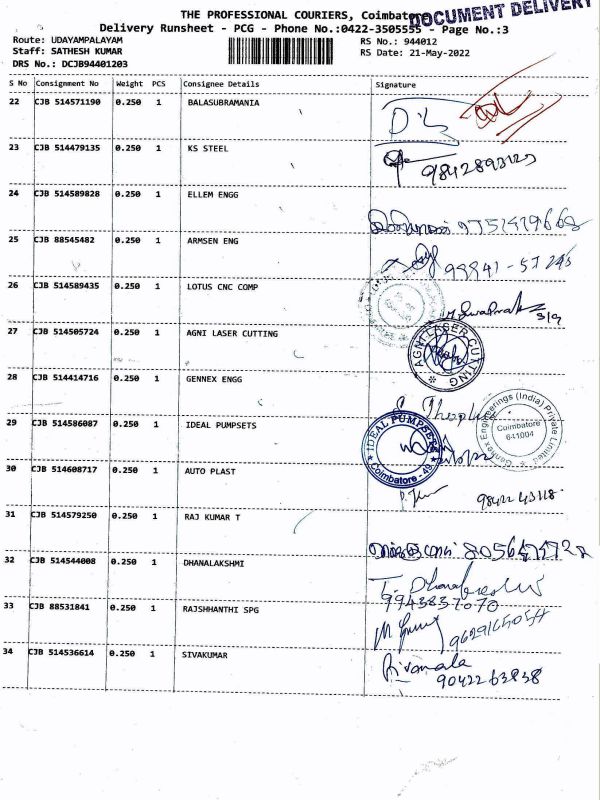 THE PROFESSIONAL COURIERS, Coimbatore
DOCUMENT DELIVERY
Delivery Runsheet - PCG - Phone No.:0422-3505555 - Page No.:3
Route: UDAYAMPALAYAM RS No.: 944012
Staff: SATHESH KUMAR RS Date: 21-May-2022
DRS No.: DCJB94401203
S No Consignment No Weight PCS Consignee Details Signature
22 CJB 514571190 0.250 1 BALASUBRAMANIA
23 CJB 514479135 0.250 1 KS STEEL
24 CJB 514589828 0.250 1 ELLEM ENGG
25 CJB 88545482 0.250 1 ARMSEN ENG
26 CJB 514589435 0.250 1 LOTUS CNC COMP
27 CJB 514505724 0.250 1 AGNI LASER CUTTING
AGNI LASER CUTTING
28 CJB 514414716 0.250 1 GENNEX ENGG
29 CJB 514586087 0.250 1 IDEAL PUMPSETS
IDEAL PUMPSETS
Coimbatore - 49
Gennex Engineerings (India) Private Limited
Coimbatore
641004
30 CJB 514608717 0.250 1 AUTO PLAST
98422 43118
31 CJB 514579250 0.250 1 RAJ KUMAR T
32 CJB 514544008 0.250 1 DHANALAKSHMI
9943837070
33 CJB 88531841 0.250 1 RAJSHHANTHI SPG
34 CJB 514536614 0.250 1 SIVAKUMAR
9042263838